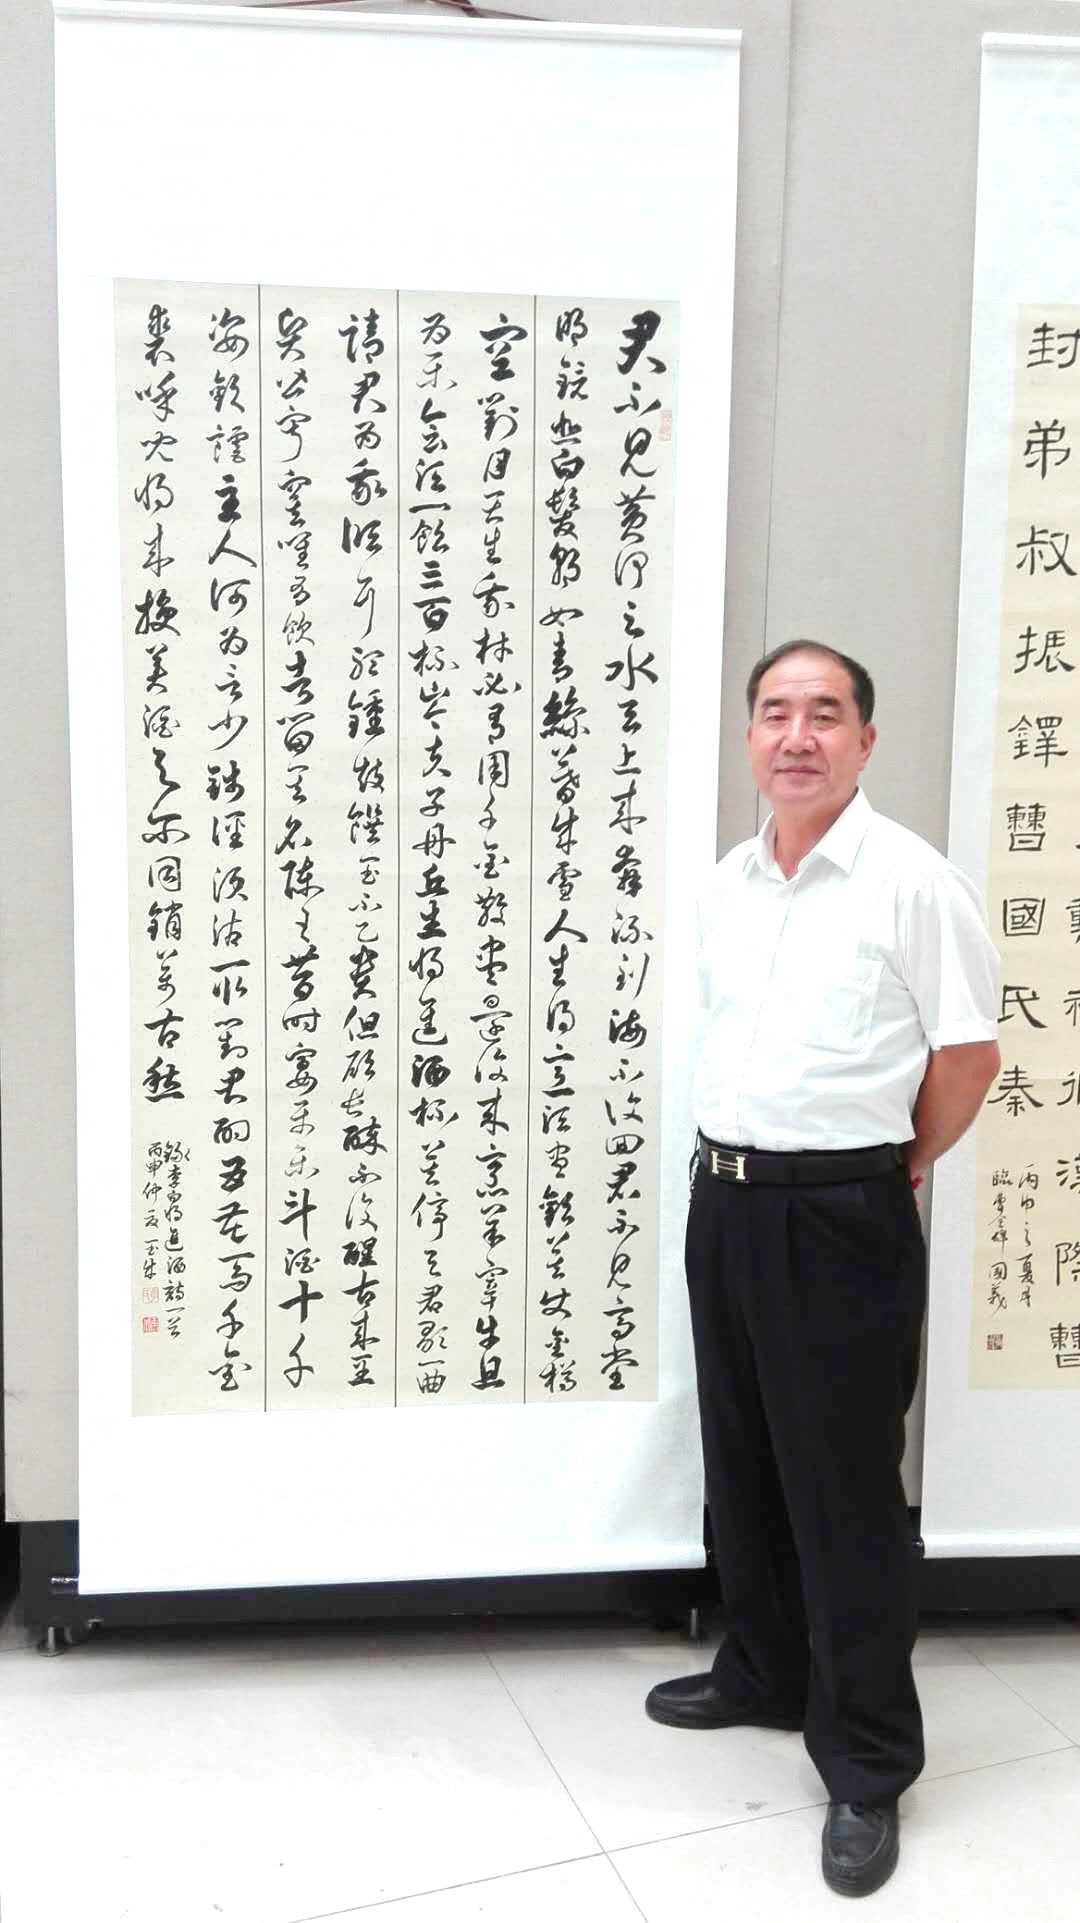 漢際曹
封弟叔振鐸曹國氏秦
丙申之夏月
臨曹全碑國義
君不見黃河之水天上來奔流到海不復回君不見高堂
明鏡悲白髮朝如青絲暮成雪人生得意須盡歡莫使金樽
空對月天生我材必有用千金散盡還復來烹羊宰牛且
為樂會須一飲三百杯岑夫子丹丘生將進酒杯莫停與君歌一曲
請君為我傾耳聽鍾鼓饌玉不足貴但願長醉不復醒古來聖
賢皆寂寞唯有飲者留其名陳王昔時宴平樂斗酒十千
恣歡謔主人何為言少錢徑須沽取對君酌五花馬千金
裘呼兒將來換美酒與爾同銷萬古愁
錄李白將進酒詩一首
丙申仲夏